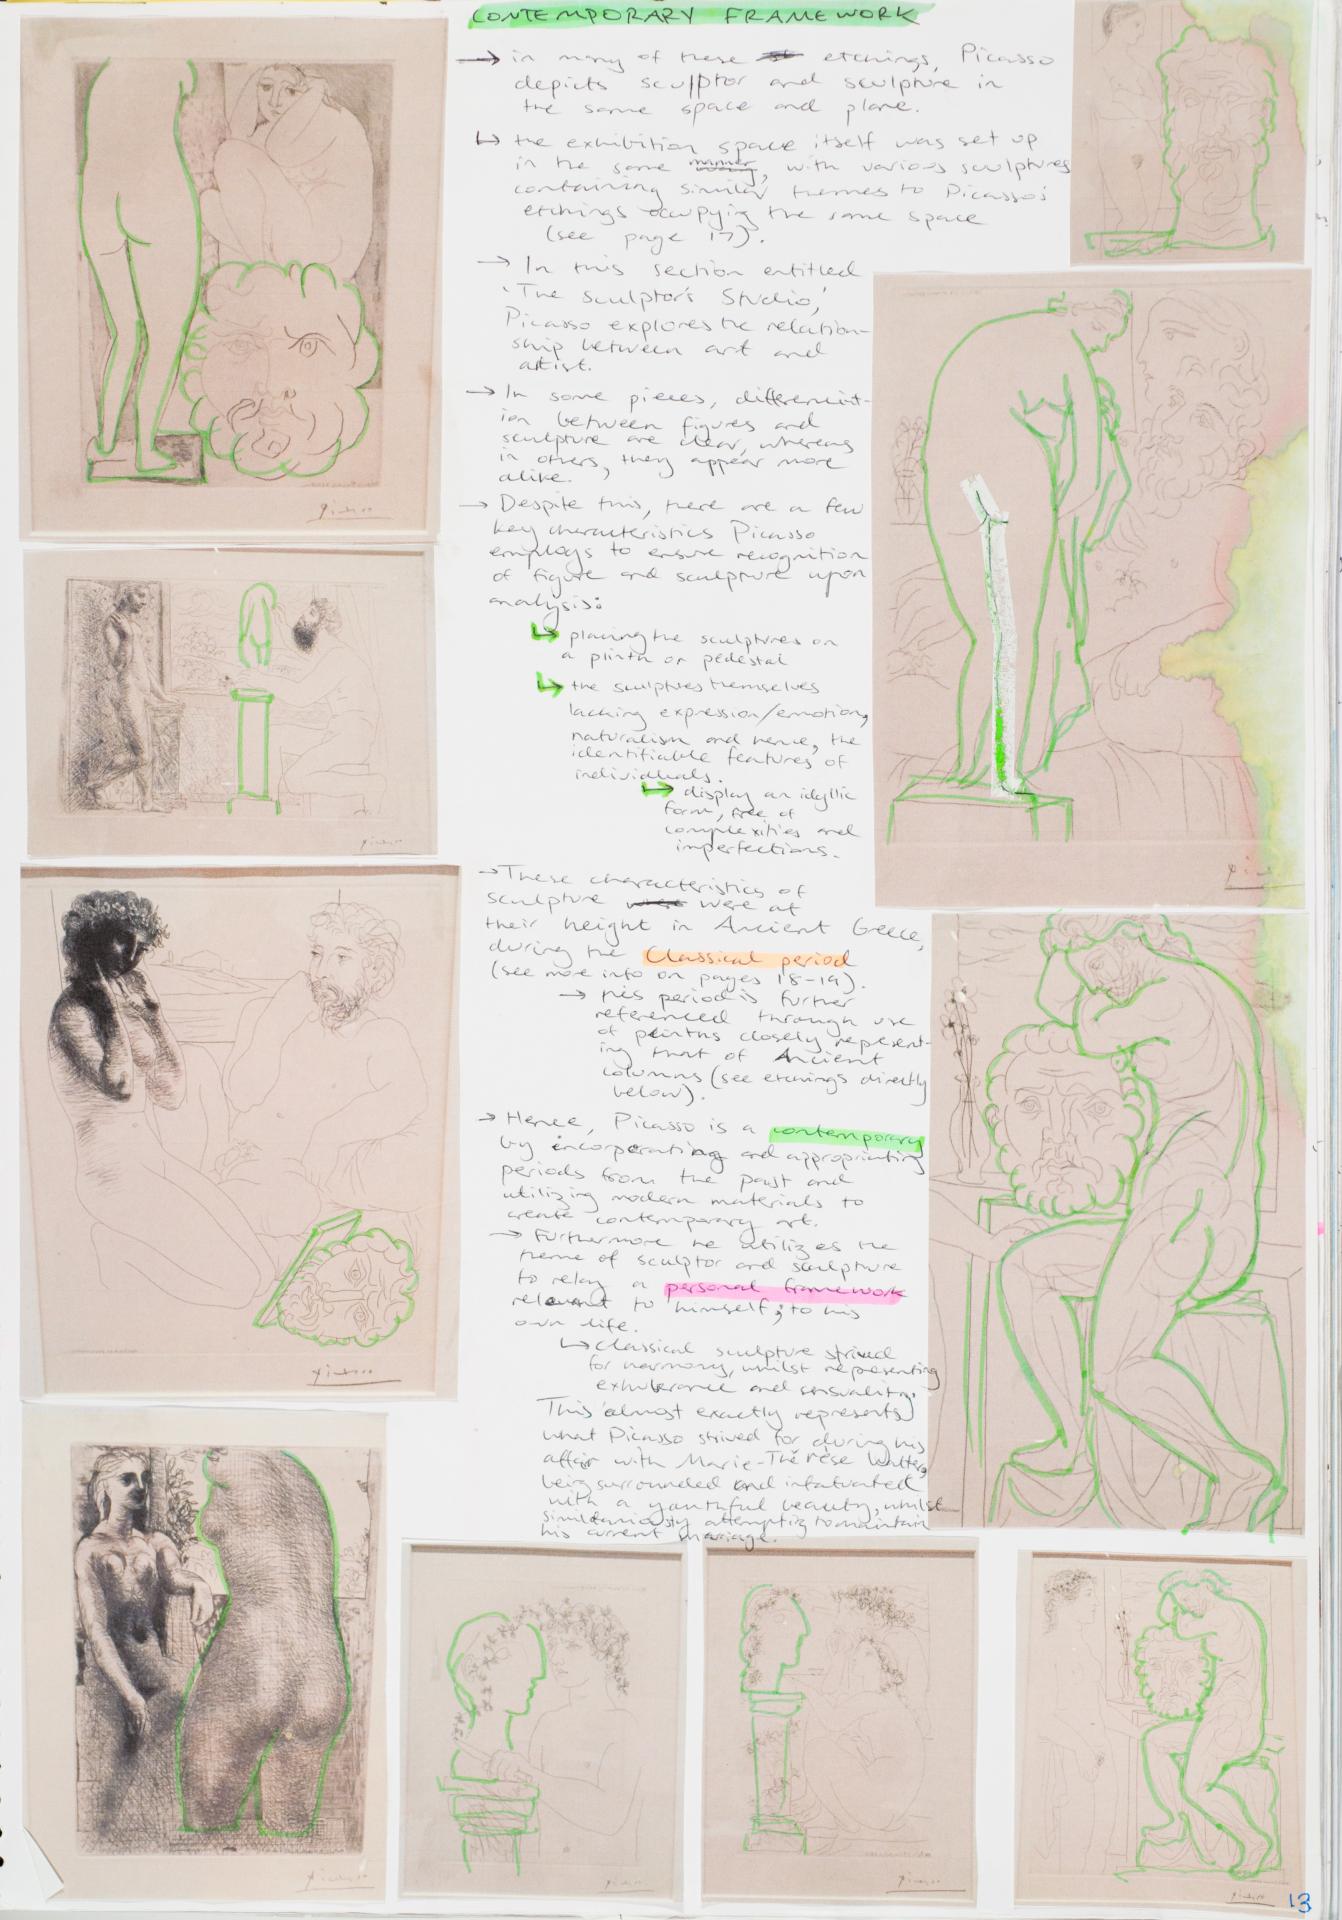 CONTEMPORARY FRAMEWORK
→ in many of these etchings, Picasso
depicts sculptor and sculpture in
the same space and plane.
↳ the exhibition space itself was set up
in the same manner, with various sculptures
containing similar themes to Picasso's
etchings occupying the same space
(see page 17).
→ In this section entitled
'The Sculptor's Studio,'
Picasso explores the relation-
ship between art and
artist.
→ In some pieces, differentiat-
ion between figures and
sculpture are clear, whereas
in others, they appear more
alike.
→ Despite this, there are a few
key characteristics Picasso
employs to ensure recognition
of figure and sculpture upon
analysis:
↳ placing the sculptures on
a plinth or pedestal
↳ the sculptures themselves
lacking expression/emotion,
naturalism and hence, the
identifiable features of
individuals.
↳ display an idyllic
form, free of
complexities and
imperfections.
→ These characteristics of
sculpture were at
their height in Ancient Greece,
during the Classical period
(see more info on pages 18-19).
→ this period is further
referenced through use
of plinths closely represent-
ing that of Ancient
columns (see etchings directly
below).
→ Hence, Picasso is a contemporary
by incorporating and appropriating
periods from the past and
utilizing modern materials to
create contemporary art.
→ Furthermore he utilizes the
theme of sculptor and sculpture
to relay a personal framework
relevant to himself; to his
own life.
↳ Classical sculpture strived
for harmony, whilst representing
exhuberance and sensuality.
This almost exactly represents
what Picasso strived for during his
affair with Marie-Thérèse Walter,
being surrounded and infatuated
with a youthful beauty, whilst
simultaneously attempting to maintain
his current marriage.
Picasso
Picasso
Picasso
Picasso
Picasso
Picasso
Picasso
13